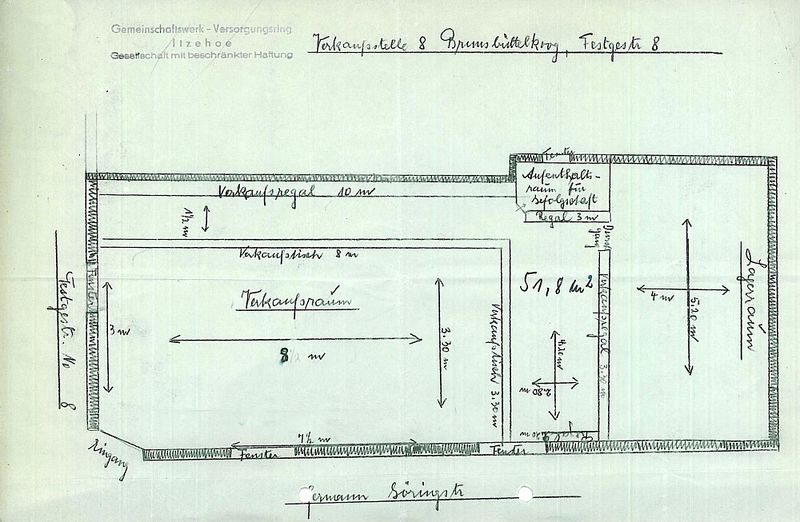 Gemeinschaftswerk - Versorgungsring
Itzehoe
Gesellschaft mit beschränkter Haftung
Verkaufsstelle 8 Brunsbüttelkoog, Festgestr 8
Fenster
Aufenthalts-
raum für
Gefolgschaft
Verkaufsregal 10 m
Regal 3 m
1½ m
Durch
gang
Verkaufstisch 8 m
51,8 m²
Verkaufsraum
Fenster
3 m
8 m
3.30 m
Verkaufstisch 3.30 m
Verkaufsregal 3.30 m
4 m
5.20 m
Lagerraum
4.20 m
2.80 m
Regal
Festgestr. No 8
Eingang
7½ m
Fenster
Fenster
Hermann Göringstr